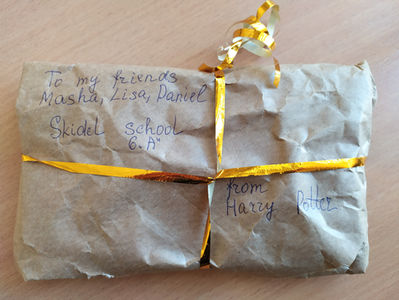 To my friends
Masha, Lisa, Daniel
Skidel school
6 „A"
from
Harry Potter